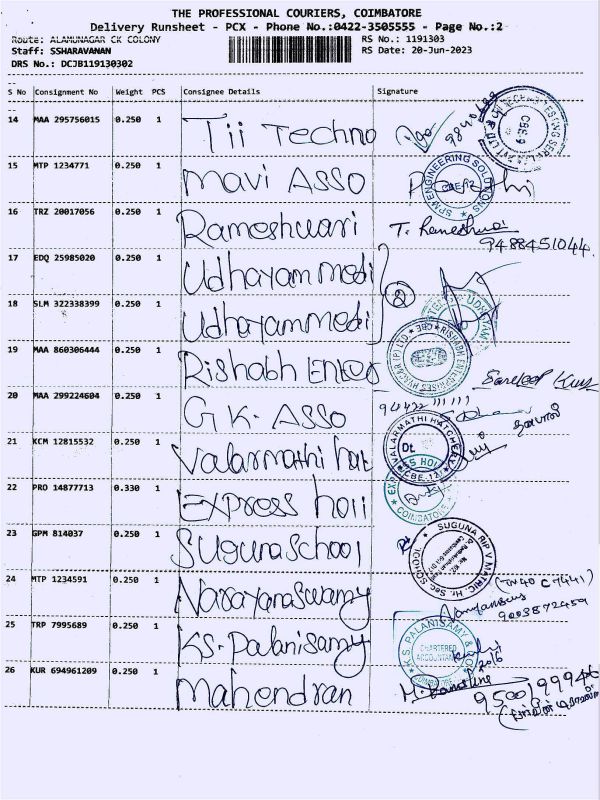 THE PROFESSIONAL COURIERS, COIMBATORE
Delivery Runsheet - PCX - Phone No.:0422-3505555 - Page No.:2
Route: ALAMUNAGAR CK COLONY RS No.: 1191303
Staff: SSHARAVANAN RS Date: 20-Jun-2023
DRS No.: DCJB119130302
S No Consignment No Weight PCS Consignee Details Signature
14 MAA 295756015 0.250 1 Tii Techno
15 MTP 1234771 0.250 1 Mavi ASSO
SPM ENGINEERING SOLUTIONS
16 TRZ 20017056 0.250 1 Rameshwari T. Rameshwari
9488451044
17 EDQ 25985020 0.250 1 Udhayam medi
2
18 SLM 322338399 0.250 1 Udhayam medi
19 MAA 860306444 0.250 1 Rishabh Enter
RISHABH ENTERPRISES
20 MAA 299224604 0.250 1 G.K. ASSO
21 KCM 12815532 0.250 1 Valarmathi hat
VALARMATHI HATCHERY
22 PRO 14877713 0.330 1 Express holi
COIMBATORE
23 GPM 814037 0.250 1 Suguna School
SUGUNA RIP V MATRIC. Hr. Sec SCHOOL
24 MTP 1234591 0.250 1 Narayanaswamy
9003872459
25 TRP 7995689 0.250 1 K.S. Palanisamy
K.S. PALANISAMY & CO
CHARTERED
ACCOUNTANTS
26 KUR 694961209 0.250 1 Mahendran